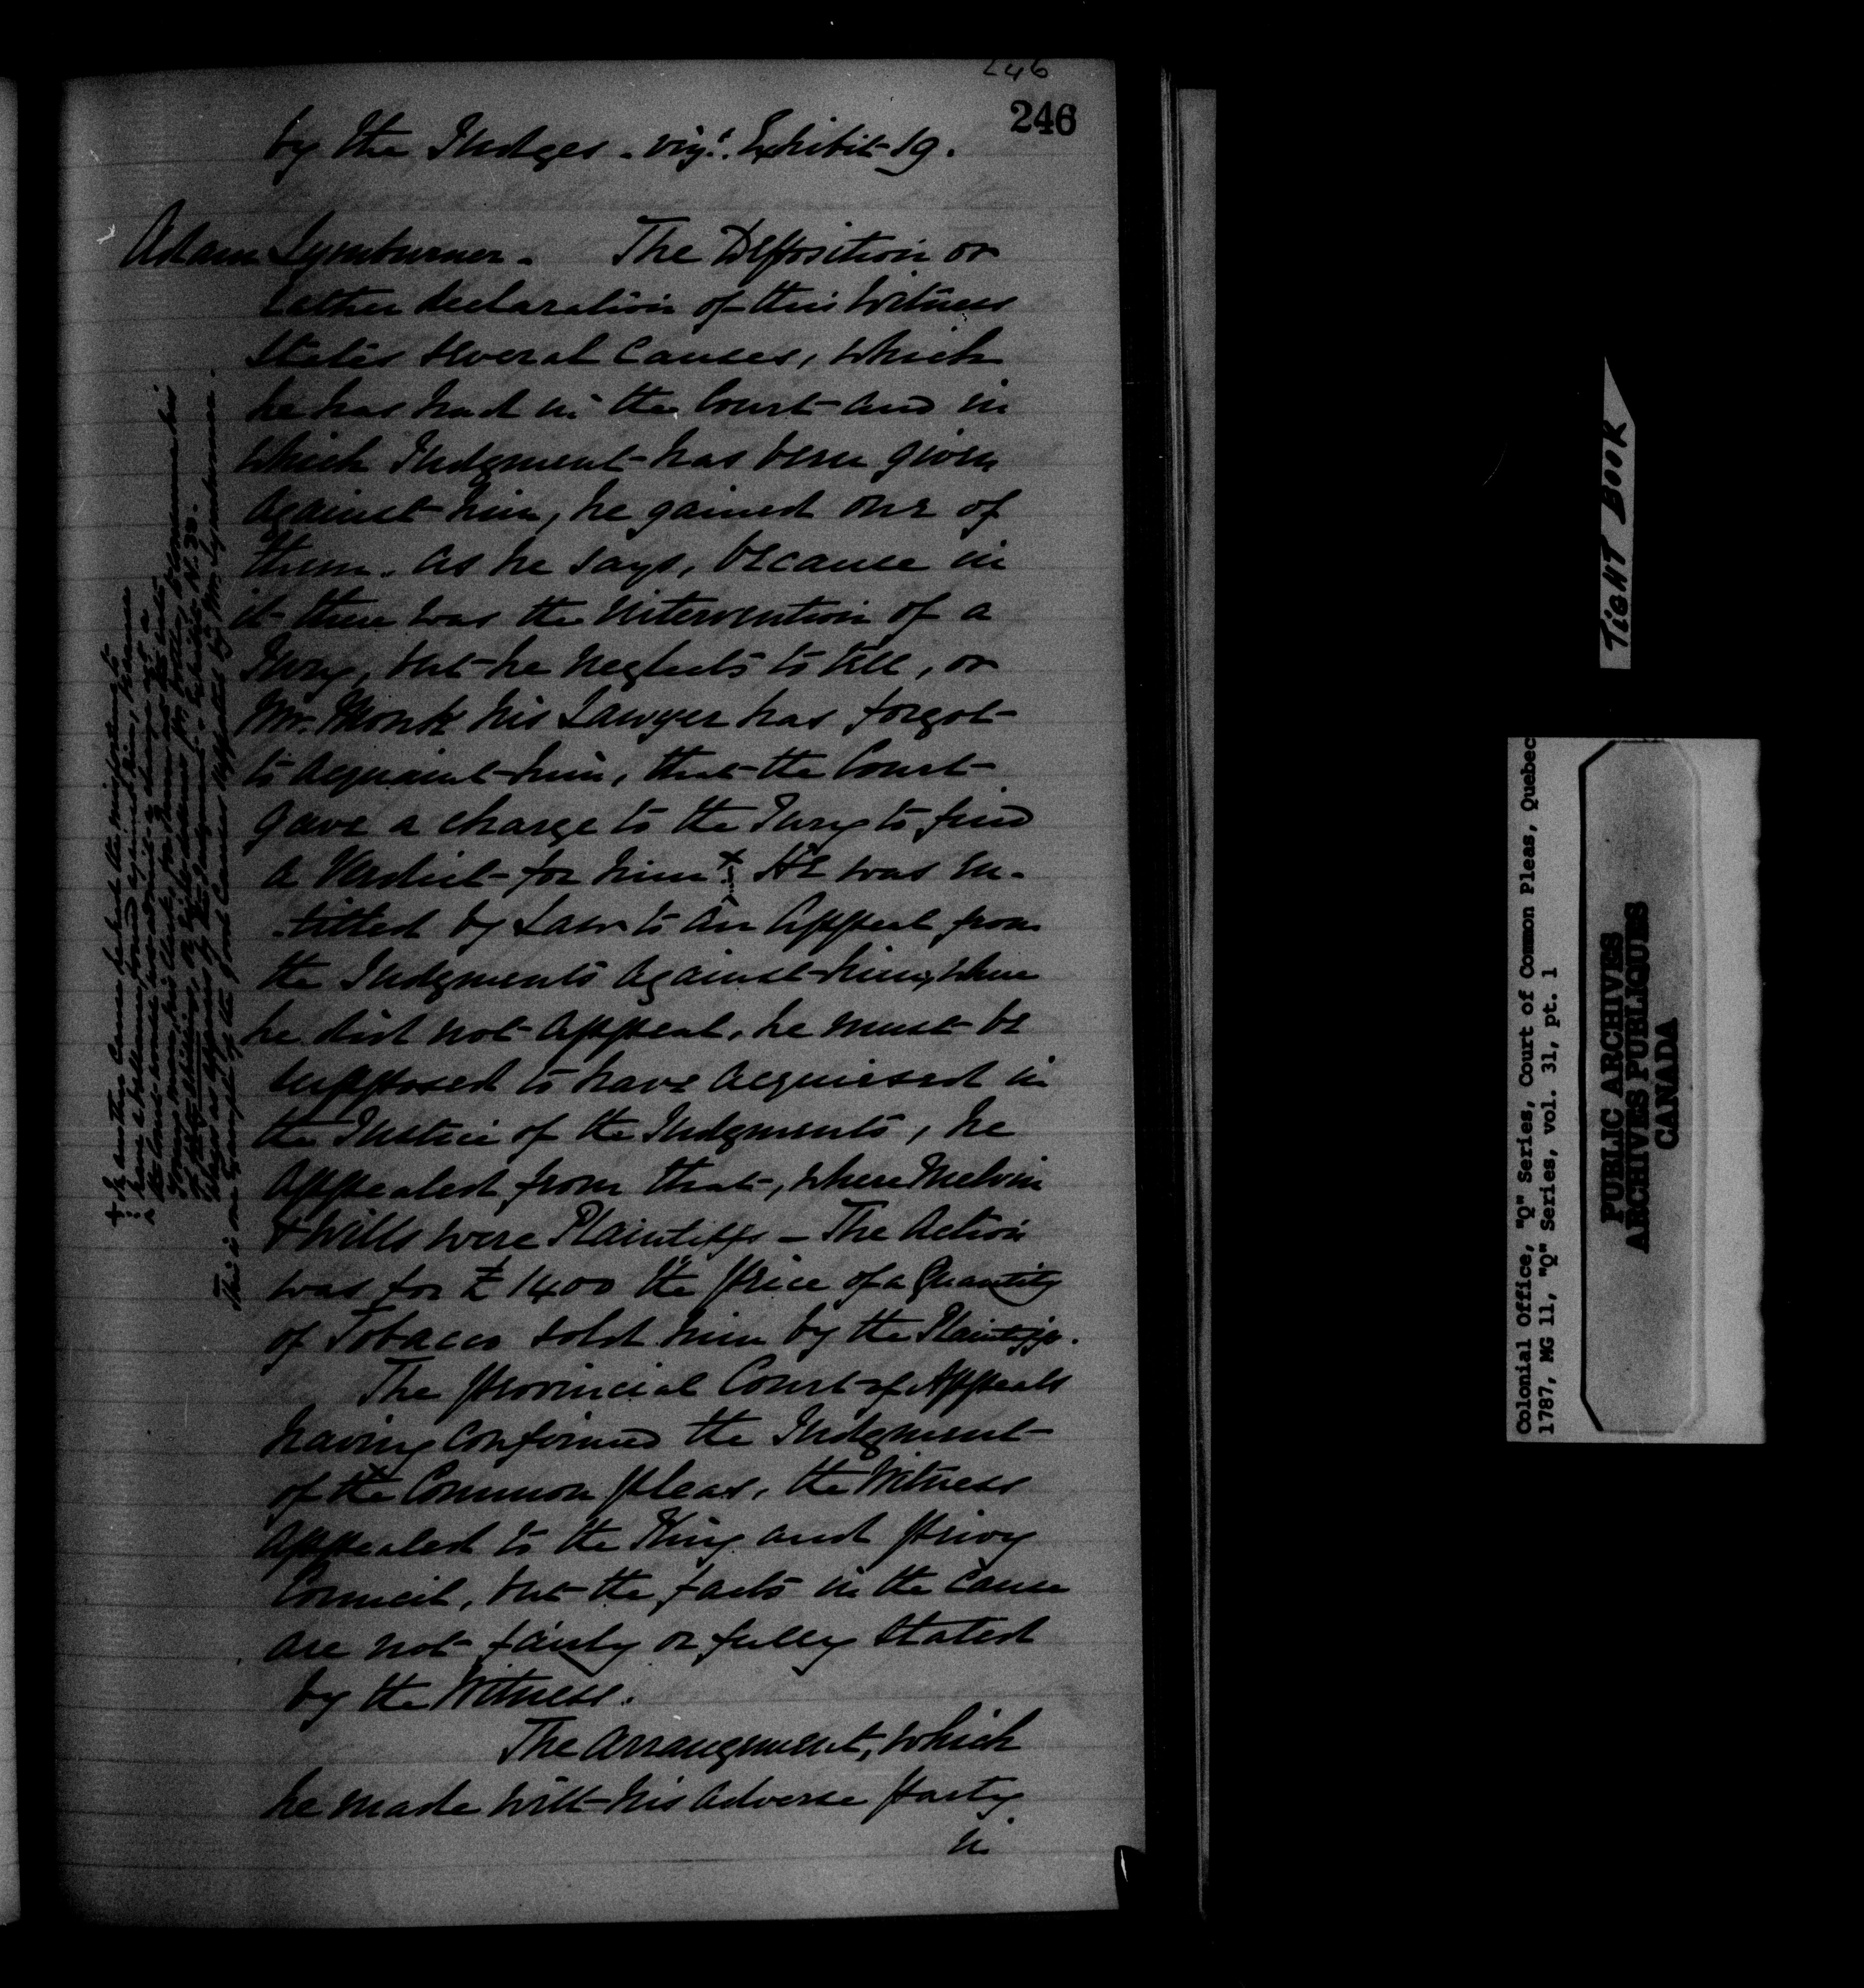 246
246
by the Judges - vizt. Exhibit 19.
Adam Lymburner - The Deposition or
rather declaration of this Witness
states several Causes, which
he has had in the Court and in
which Judgment has been given
against him, he gained one of
them. as he says, because in
it there was the intervention of a
Jury, but he neglects to tell, or
Mr. Monk his Lawyer has forgot
to acquaint him, that the Court
gave a charge to the Jury to find
a Verdict for him + He was en-
-titled by Law to an Appeal from
the Judgments against him, where
he did not appeal, he must be
supposed to have acquiesced in
the Justice of the Judgments, he
appealed from that, where Melvin
& Wills were Plaintiffs - The Action
was for £1400 the price of a Quantity
of Tobacco sold him by the Plaintiffs.
The provincial Court of Appeals
having confirmed the Judgment
of the Common pleas, the Witness
appealed to the King and privy
Council, but the facts in the Cause
are not fairly or fully stated
by the Witness.
The arrangement, which
he made with his adverse party
in
+ In another Cause he had the misfortune to
have a Balance found against him, where
the Court would not admit a charge of a
young man, his Clerk,
of
Wages as appears by the Judgment - Exhibit No. 20.
This is one Example of the good Causes Appealed by Mr. Lymburner.
TIGHT BOOK
Colonial Office, "Q" Series, Court of Common Pleas, Quebec
1787, MG 11, "Q" Series, vol. 31, pt. 1
PUBLIC ARCHIVES
ARCHIVES PUBLIQUES
CANADA